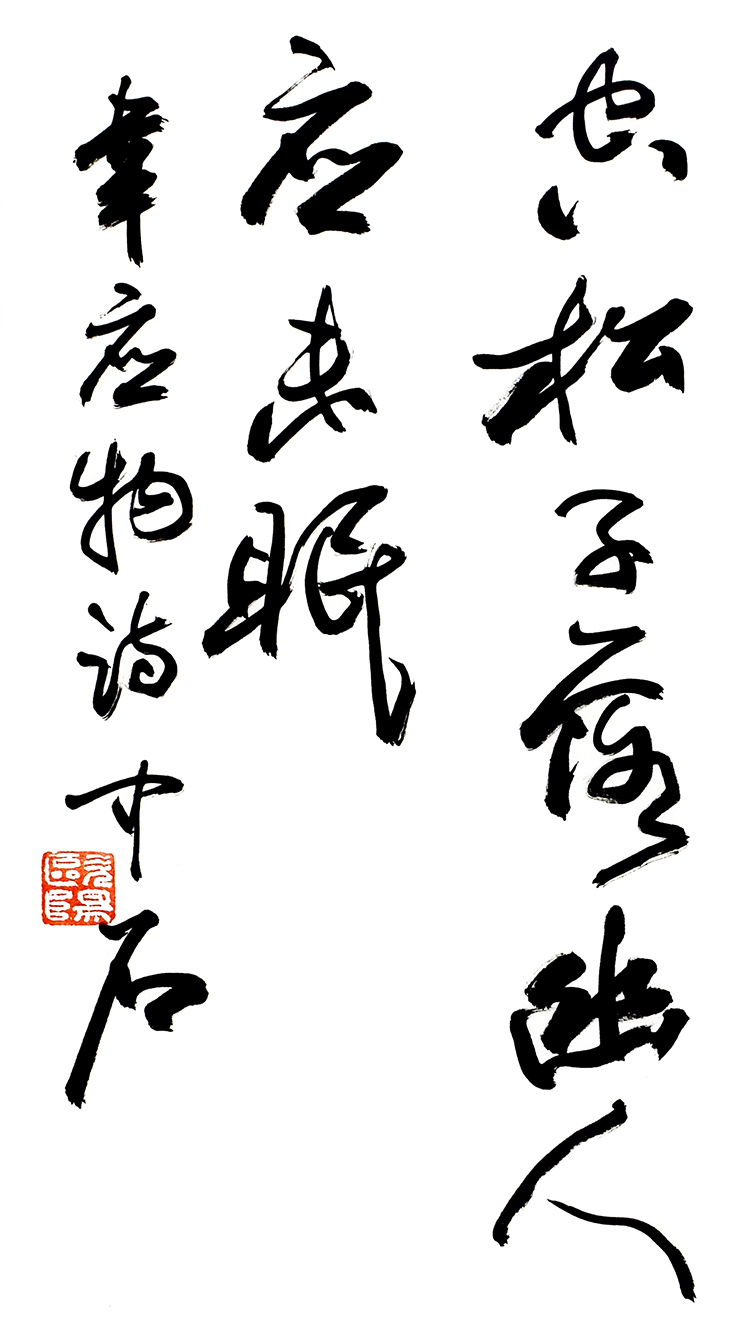 空山松子落幽人
应未眠
韋应物诗中石